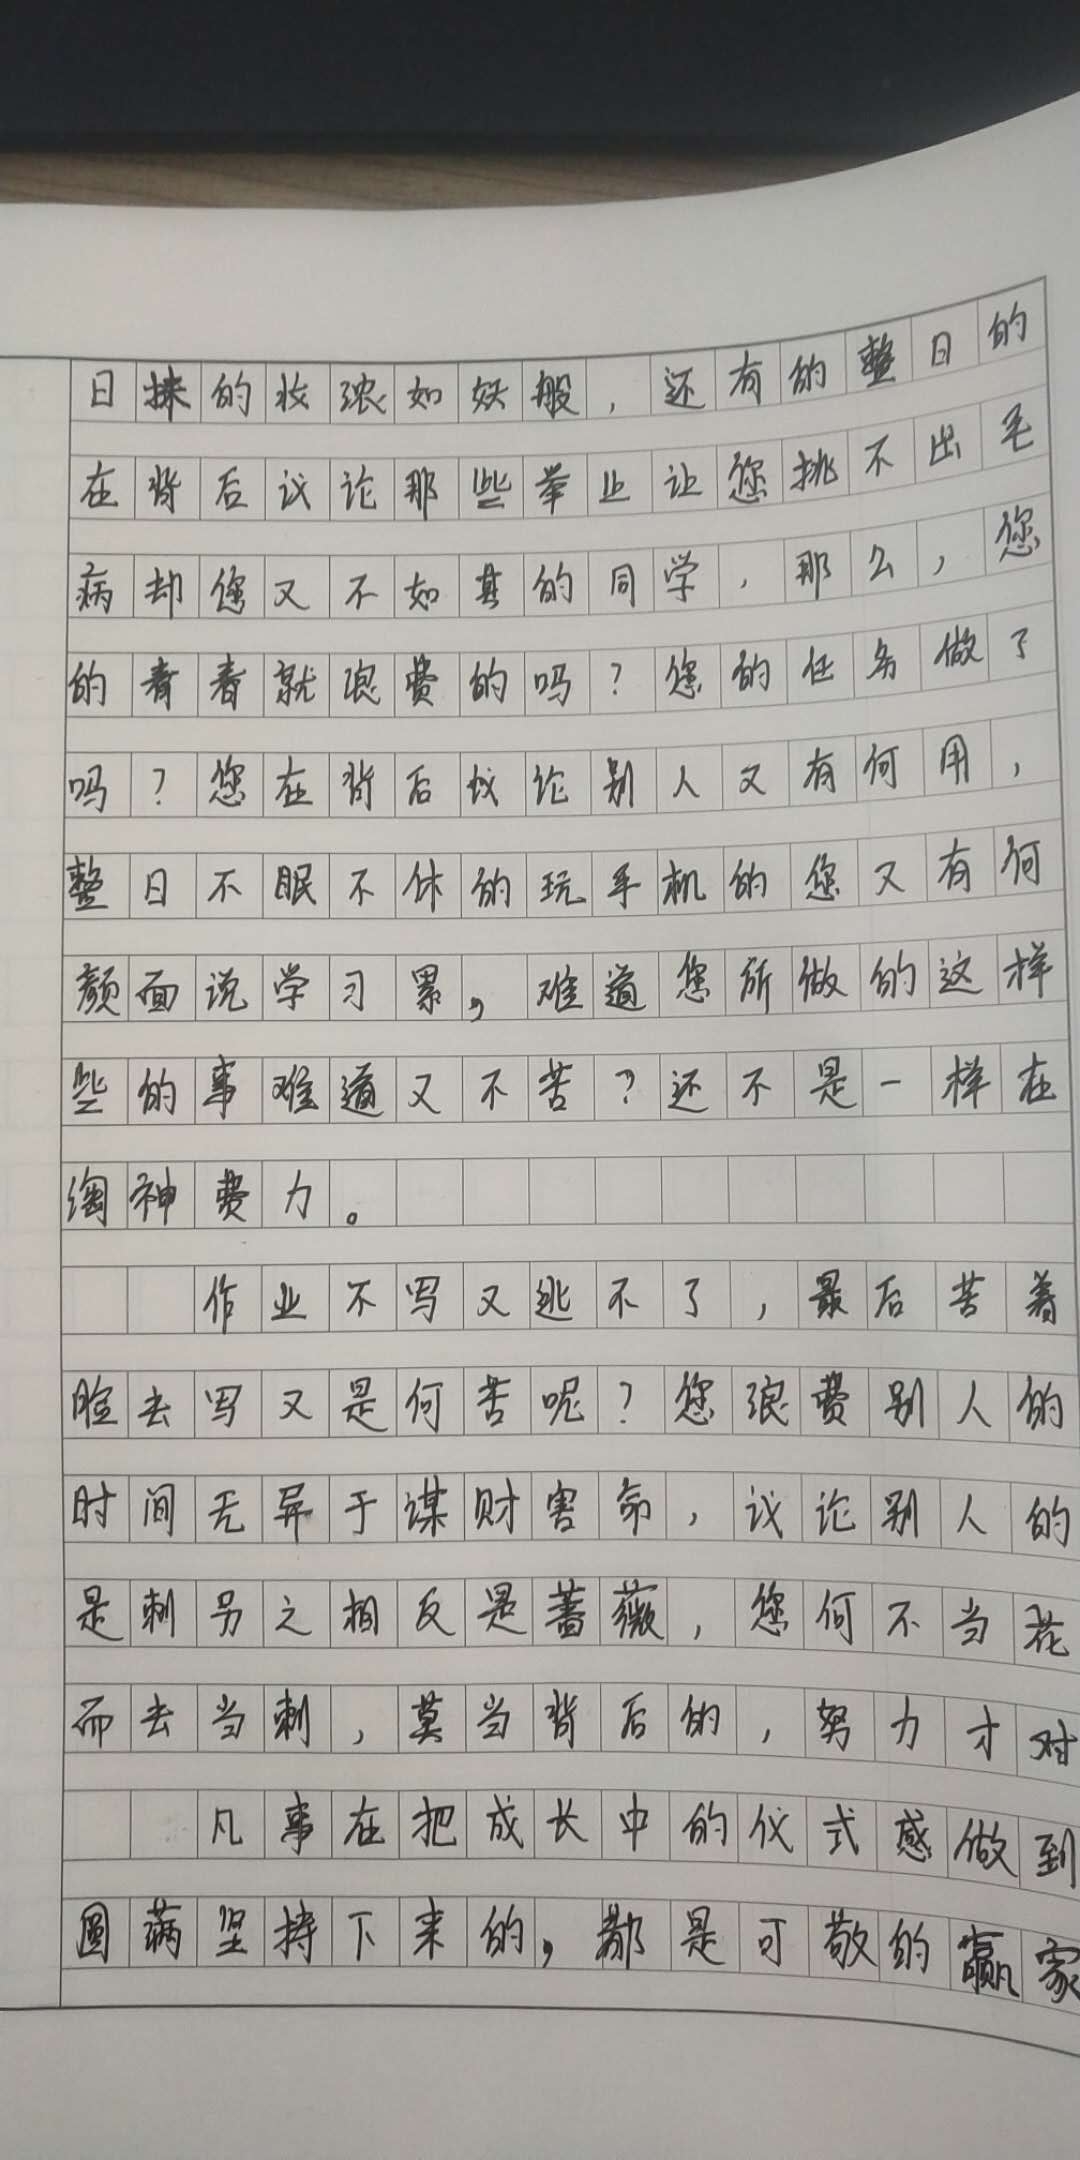 日抹的妆浓如妖般，还有的整日的
在背后议论那些举止让您挑不出毛
病却您又不如其的同学，那么，您
的青春就浪费的吗？您的任务做了
吗？您在背后议论别人又有何用，
整日不眠不休的玩手机的您又有何
颜面说学习累，难道您所做的这样
些的事难道又不苦？还不是一样在
淘神费力。
作业不写又逃不了，最后苦着
脸去写又是何苦呢？您浪费别人的
时间无异于谋财害命，议论别人的
是刺另之相反是蔷薇，您何不当花
而去当刺，莫当背后的，努力才对
凡事在把成长中的仪式感做到
圆满坚持下来的，都是可敬的赢家